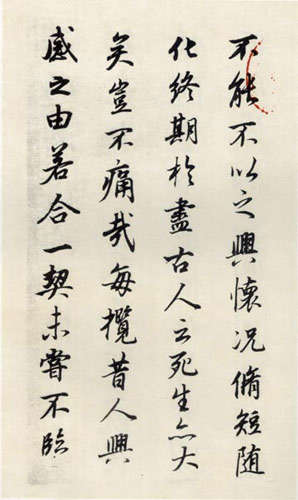 不能不以之興懷况脩短随
化終期於盡古人云死生亦大
矣豈不痛哉每攬昔人興
感之由若合一契未嘗不臨